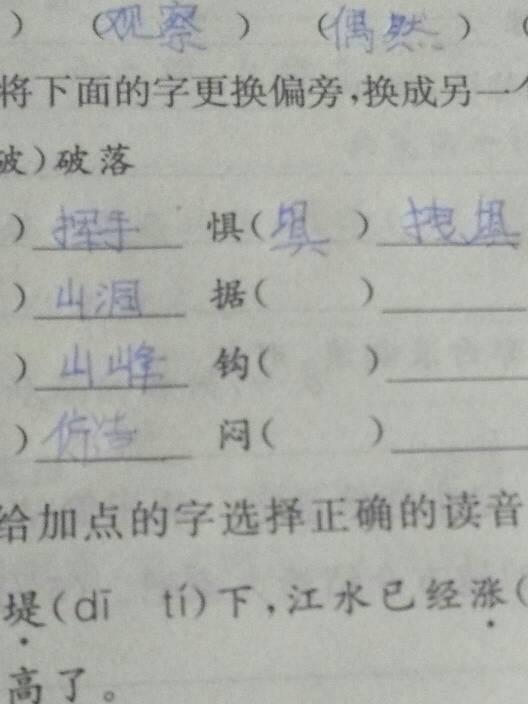 ) (观察) (偶然) (
将下面的字更换偏旁,换成另一个
破)破落
) 挥手 惧( )
) 山洞 据( )
) 山峰 钩( )
) 仿造 闷( )
给加点的字选择正确的读音
堤(dī tí)下,江水已经涨(
高了。